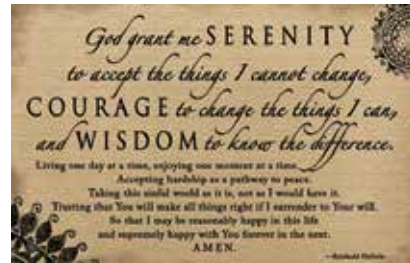 God grant me SERENITY
to accept the things I cannot change,
COURAGE to change the things I can,
and WISDOM to know the difference.
Living one day at a time, enjoying one moment at a time.
Accepting hardship as a pathway to peace.
Taking this sinful world as it is, not as I would have it.
Trusting that You will make all things right if I surrender to Your will.
So that I may be reasonably happy in this life
and supremely happy with You forever in the next.
AMEN.